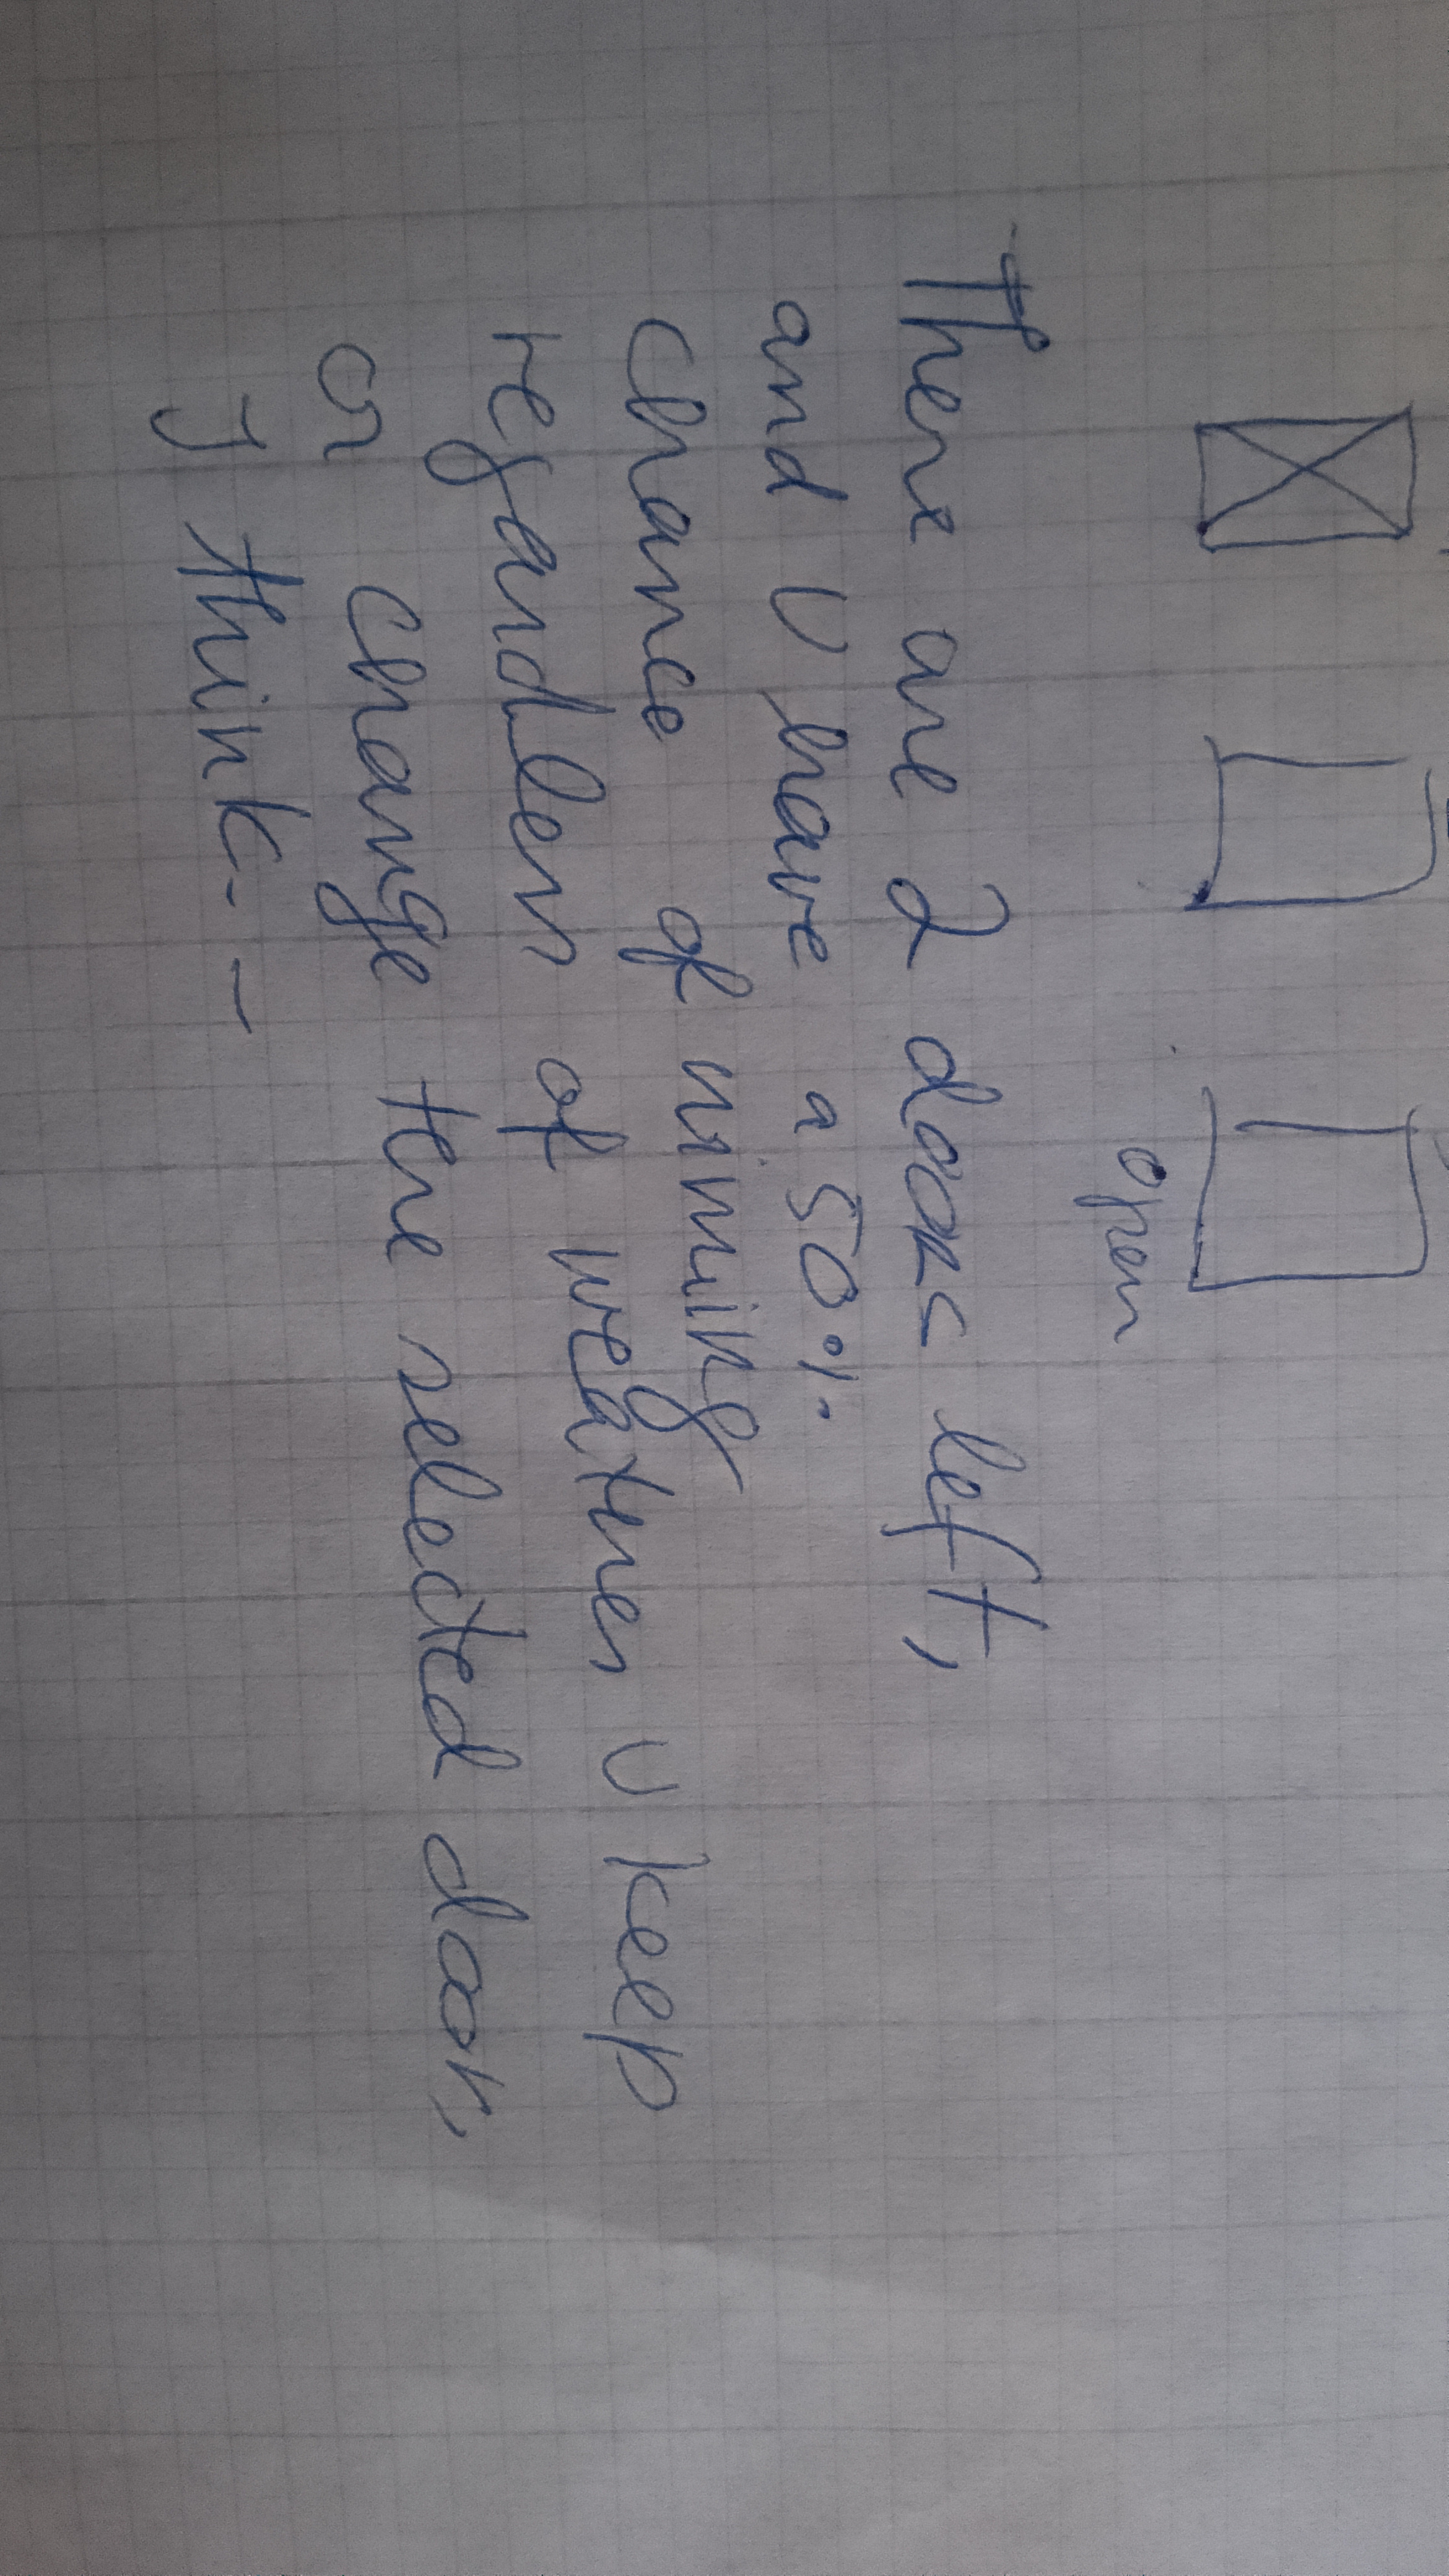 open
There are 2 doors left,
and U have a 50%
chance of nining
regardlen of weather u keep
or change the selected door,
I think - -